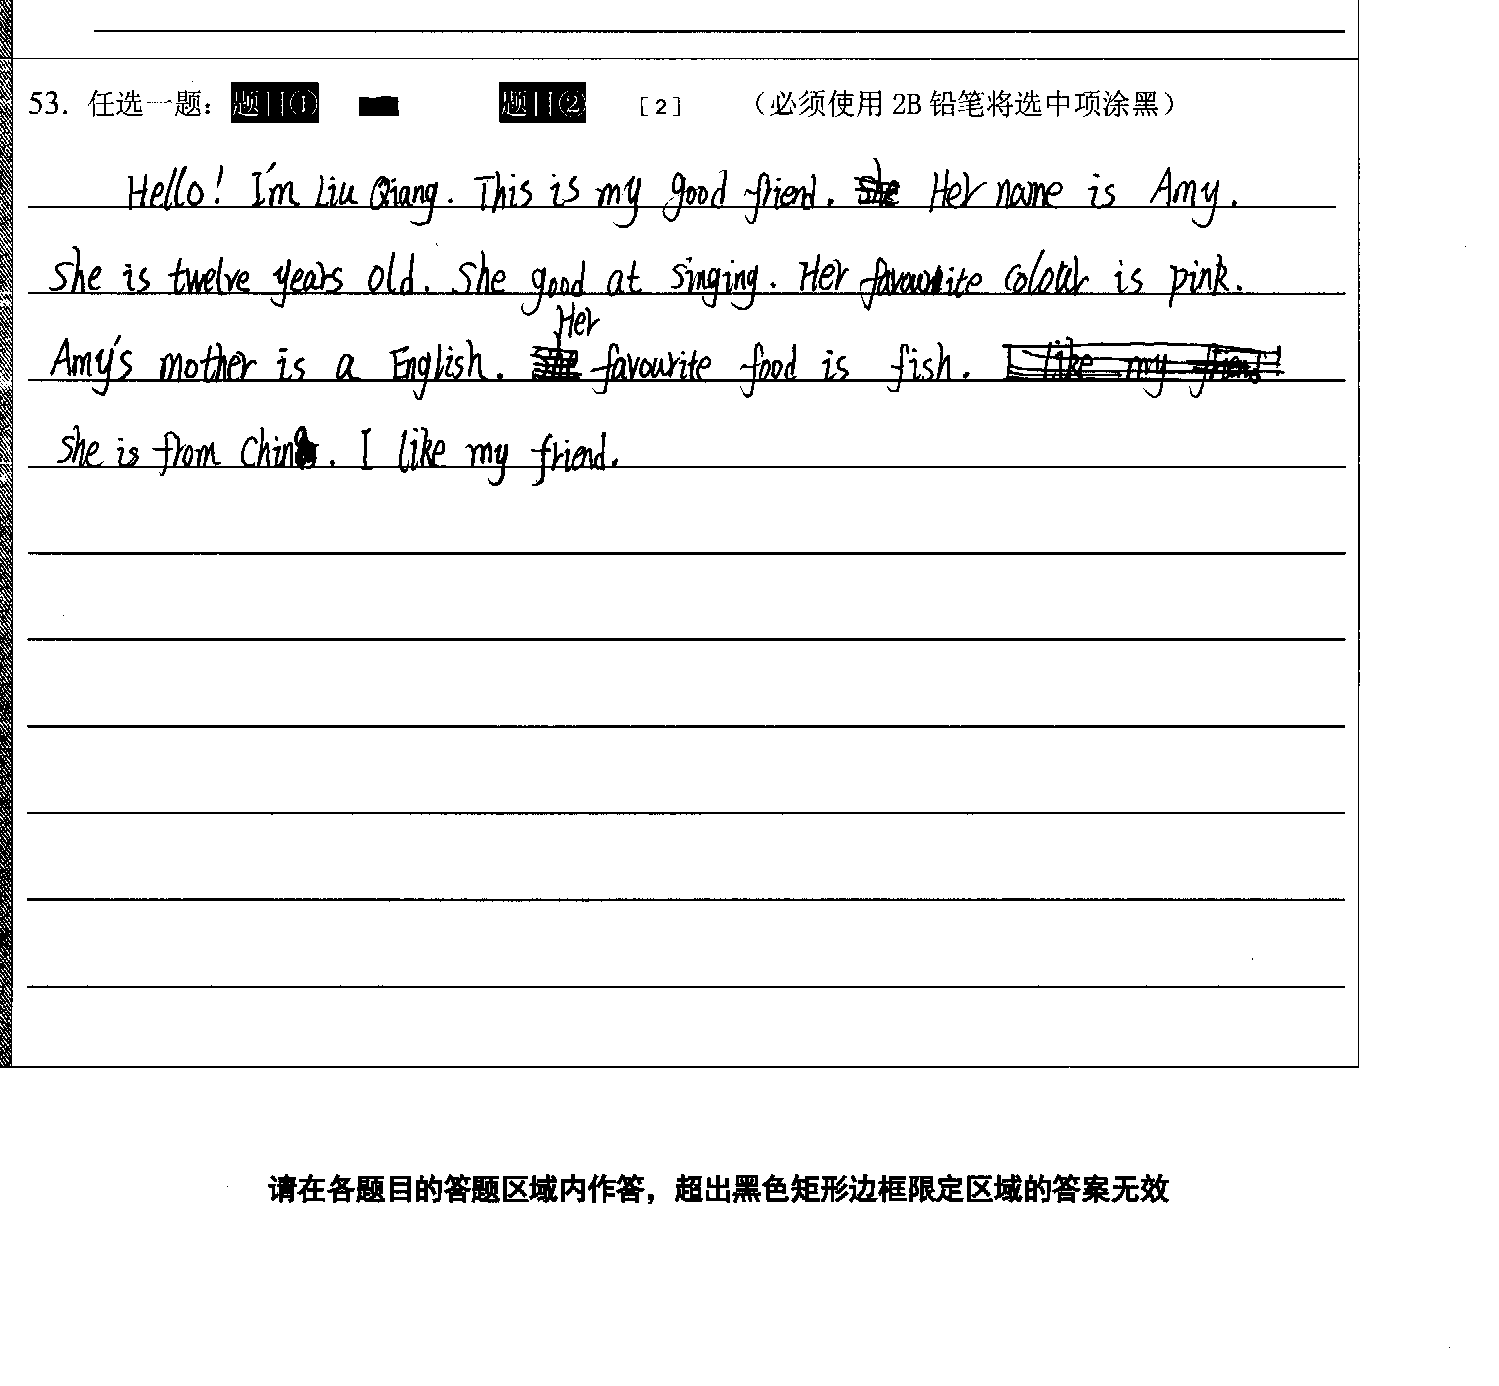 53. 任选一题: 题目① 题目② [2] （必须使用 2B 铅笔将选中项涂黑）
Hello! I'm Liu Qiang. This is my good friend. She Her name is Amy.
She is twelve years old. She good at singing. Her favourite colour is pink.
Her
Amy's mother is a English. She favourite food is fish. I like my friend
She is from China. I like my friend.
请在各题目的答题区域内作答，超出黑色矩形边框限定区域的答案无效